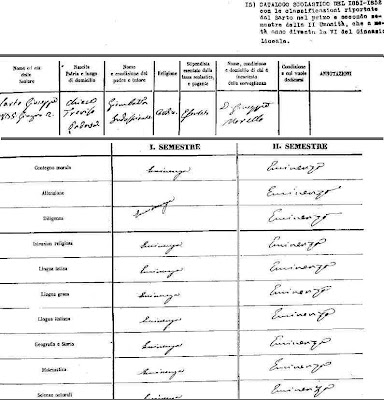 15) CATALOGO SCOLASTICO DEL 1851-1852
con le classificazioni riportate
dal Sarto nel primo e secondo se-
mestre della II Umanità, che a me-
tà anno diventa la VI del Ginnasio
Liceale.
Nome ed età dello Scolare
Nascita Patria e luogo di domicilio
Nome e condizione del padre o tutore
Religione
Stipendista esentato dalla tassa scolastica, o pagante
Nome, condizione e domicilio di chi è incaricato della sorveglianza
Condizione a cui vuole dedicarsi
ANNOTAZIONI
Sarto Giuseppe
Riese
Treviso
Padova
Giambatta
Cattol.
D. Giuseppe
I. SEMESTRE II. SEMESTRE
Contegno morale Eminenza Eminenza
Attenzione Eminenza Eminenza
Diligenza Eminenza Eminenza
Istruzion religiosa Eminenza Eminenza
Lingua latina Eminenza Eminenza
Lingua greca Eminenza Eminenza
Lingua italiana Eminenza Eminenza
Geografia e Storia Eminenza Eminenza
Matematica Eminenza Eminenza
Scienze naturali Eminenza Eminenza